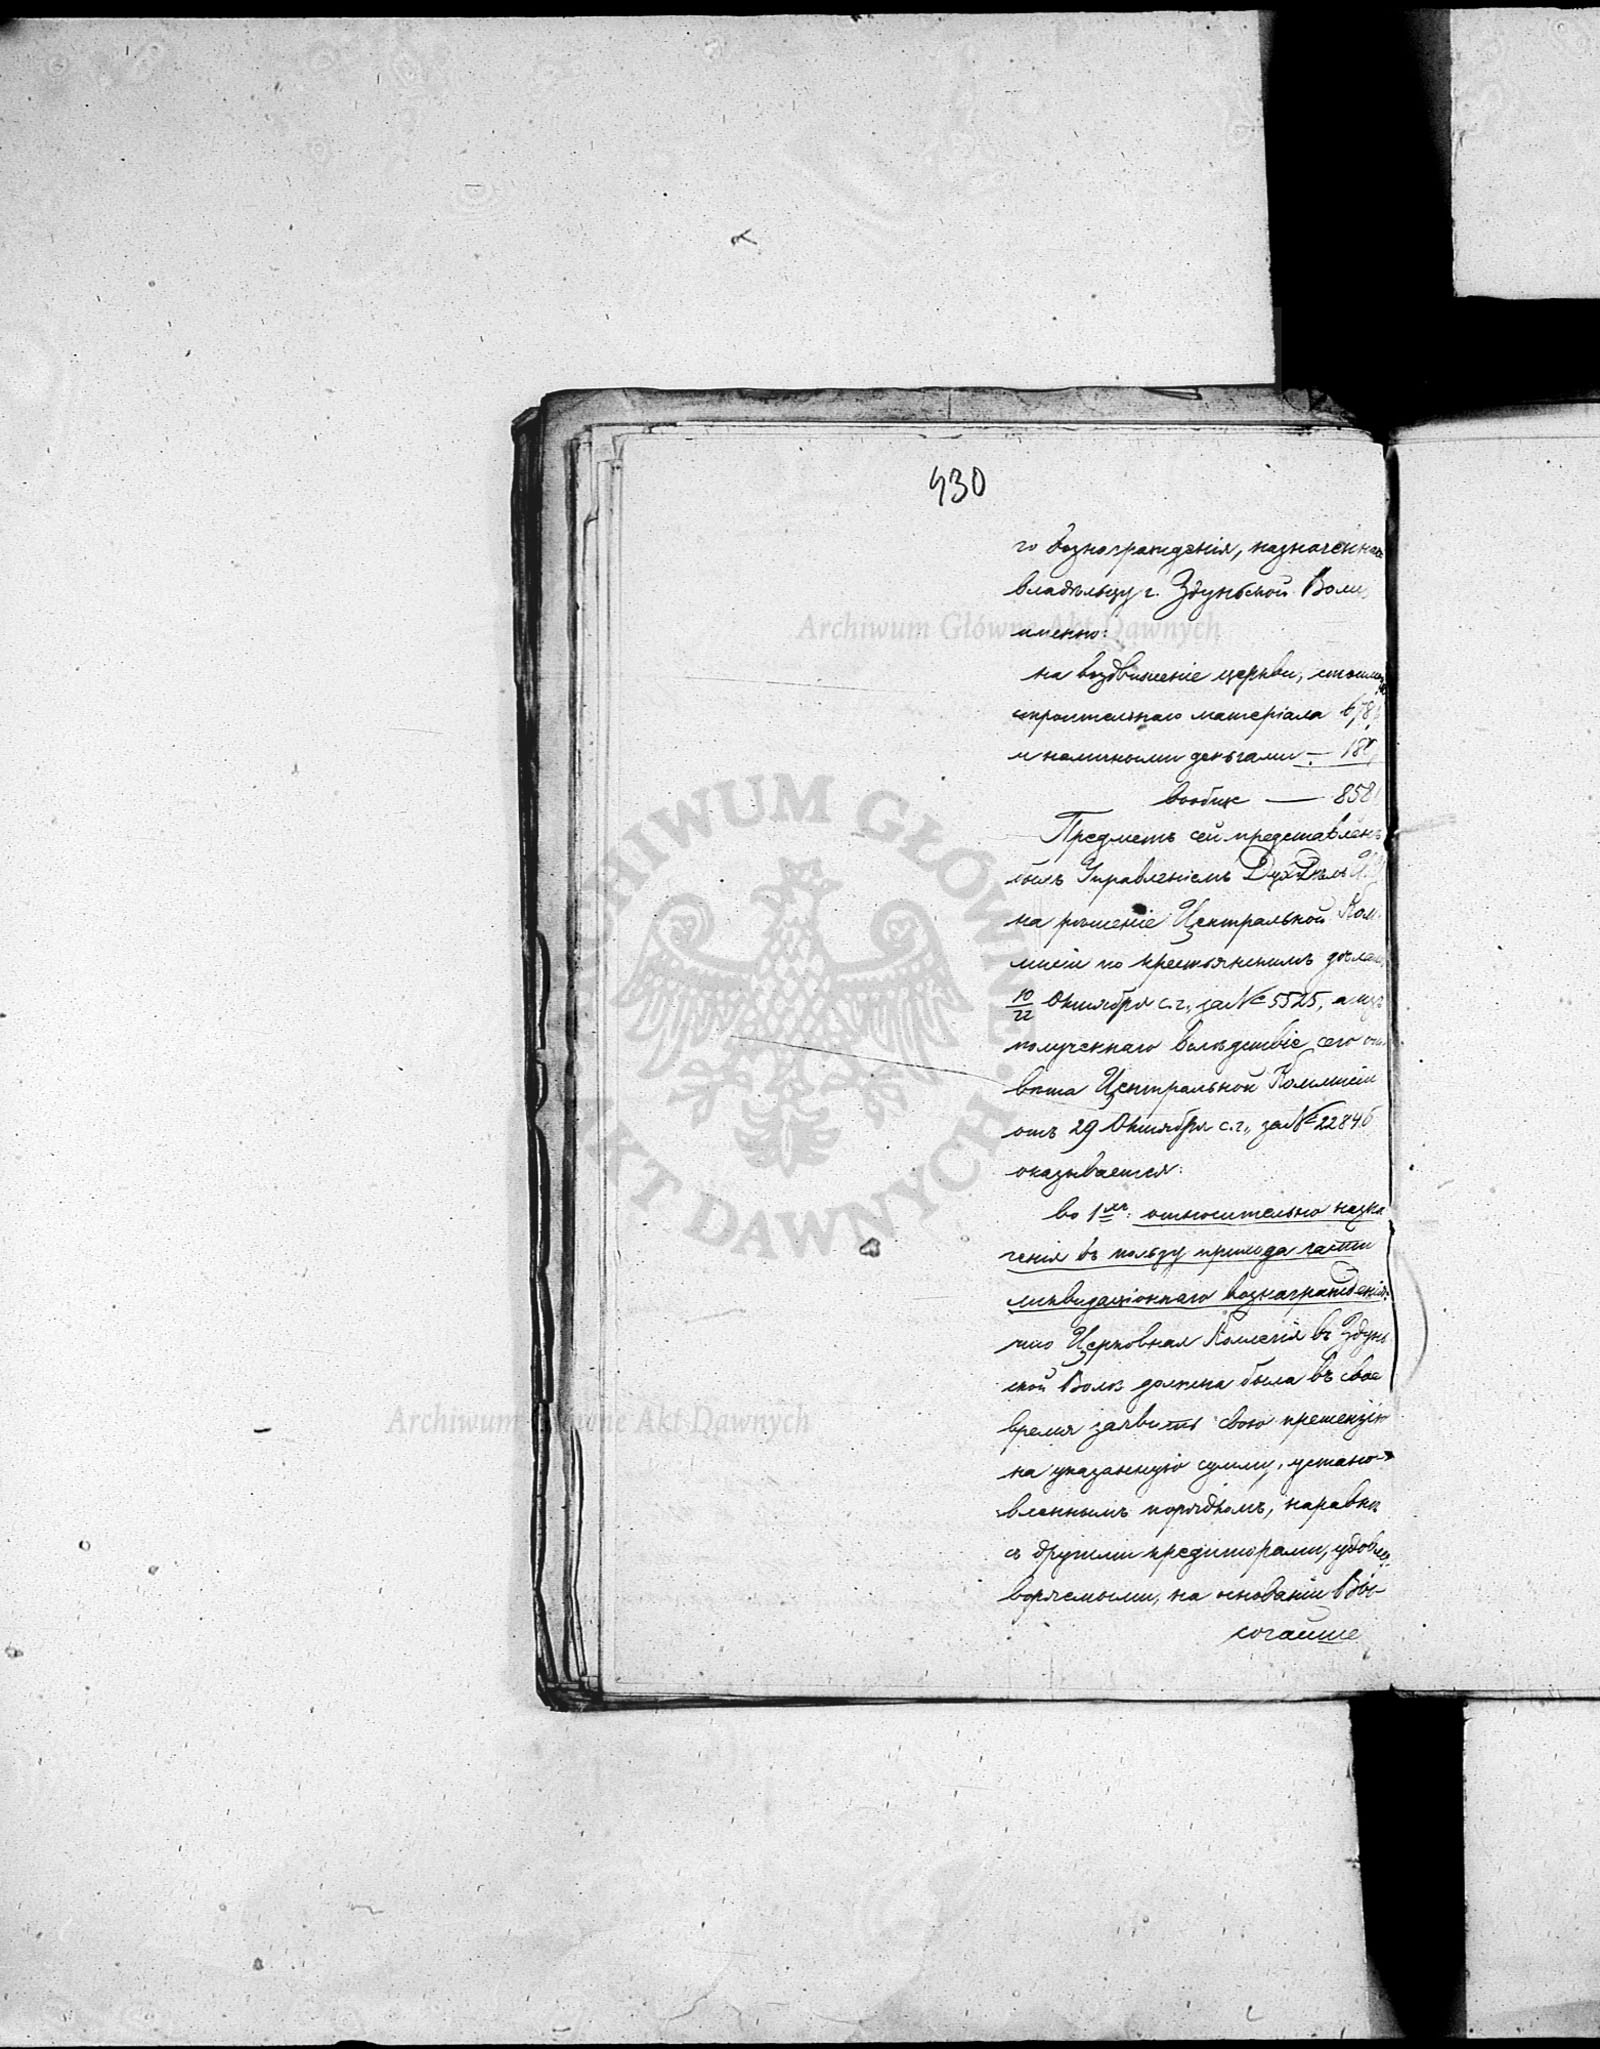 430
го вознагражденія, назначенна
владѣльцу г. Здуньской Воли
именно:
на воздвиженіе церкви, стоим
строительнаго матеріала 678
и наличными деньгами — 18
вообще — 858
Предметъ сей представленъ
былъ Управленіемъ Дух. Дѣлъ
на рѣшеніе Центральной Ком
мисіи по крестьянскимъ дѣлам
10/22 Октября с. г., за № 5525, а изъ
полученнаго вслѣдствіе сего от
вѣта Центральной Коммисіи
отъ 29 Октября с. г., за № 22846
оказывается:
во 1хъ: относительно назна
ченія въ пользу прихода части
ликвидаціоннаго вознагражденія:
что Церковная Коллегія въ Здунь
ской Волѣ должна была въ свое
время заявить свою претензію
на указанную сумму, устано-
вленнымъ порядкомъ, наравнѣ
съ другими кредиторами, удовле
воряемыми, на основаніи Вы-
сочайше
Archiwum Główne Akt Dawnych
ARCHIWUM GŁÓWNE AKT DAWNYCH
Archiwum Główne Akt Dawnych